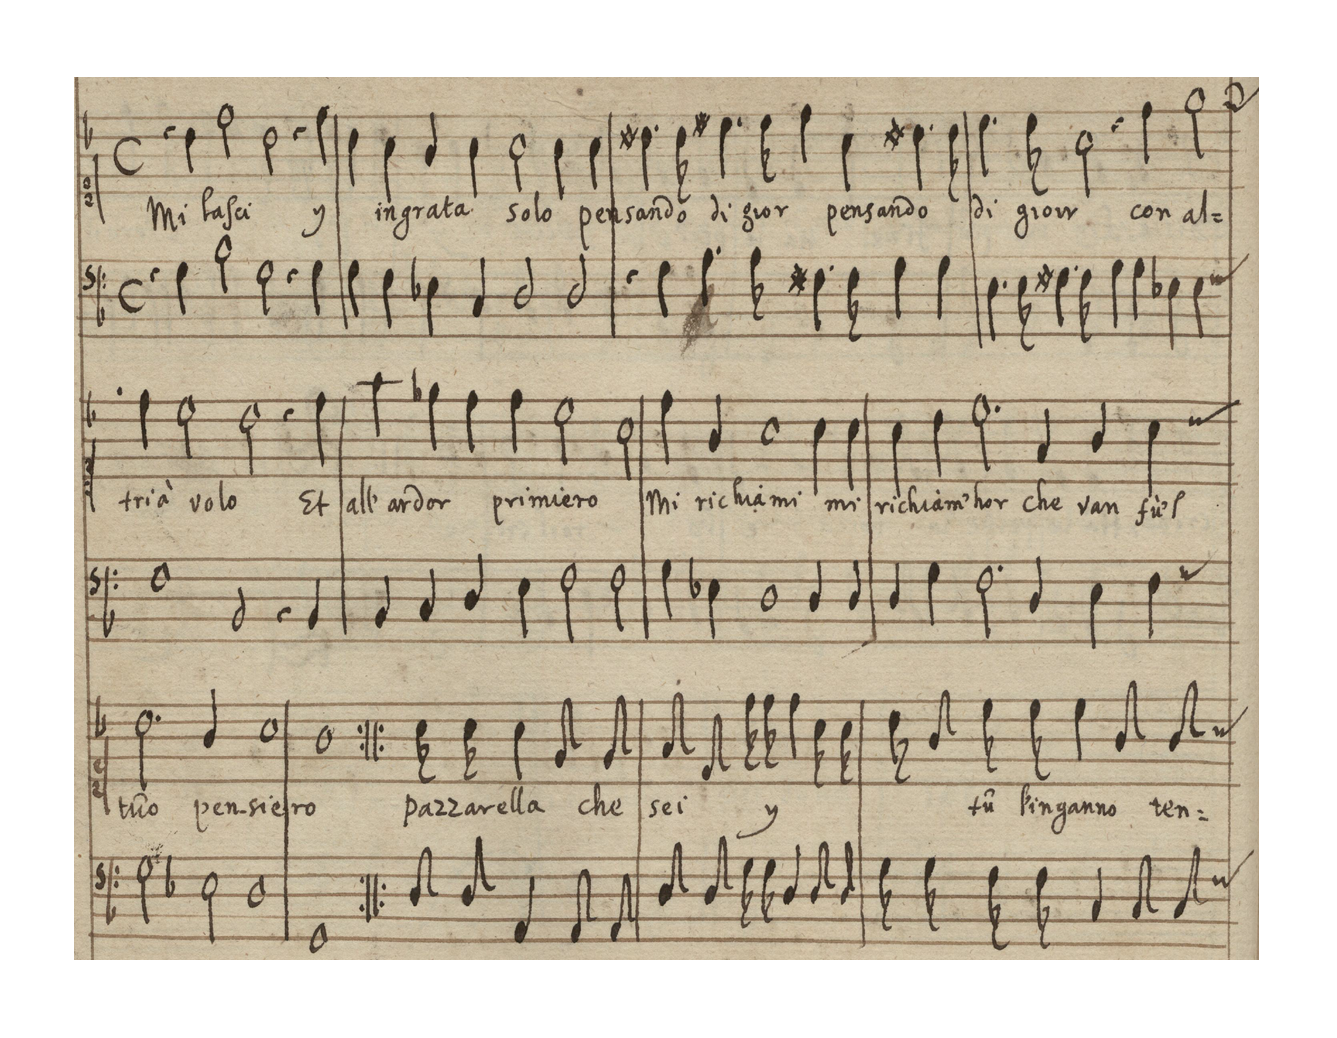 Mi lasci y ingrata solo pensando di gior pensando di gioir con al=
tri à volo Et all' ardor primiero Mi richiami mi richiam' hor che van fù'l
tuo pen-siero pazzarella che sei y tù l'inganno ten=